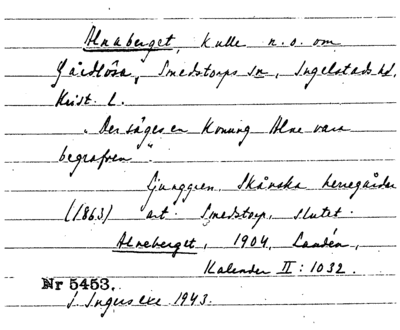 Alnaberget, Kulle n.o. om
Gårdlösa, Smedstorps sn, Ingelstads hd,
Krist. L.
"Der säges en Konung Alne vara
begrafven".
Ljunggren, Skånska herregårdar
(1863) art. Smedstorp, slutet.
Alneberget, 1904, Landén,
Kalender II: 1032.
Nr 5453.
I. Ingers exc. 1943.